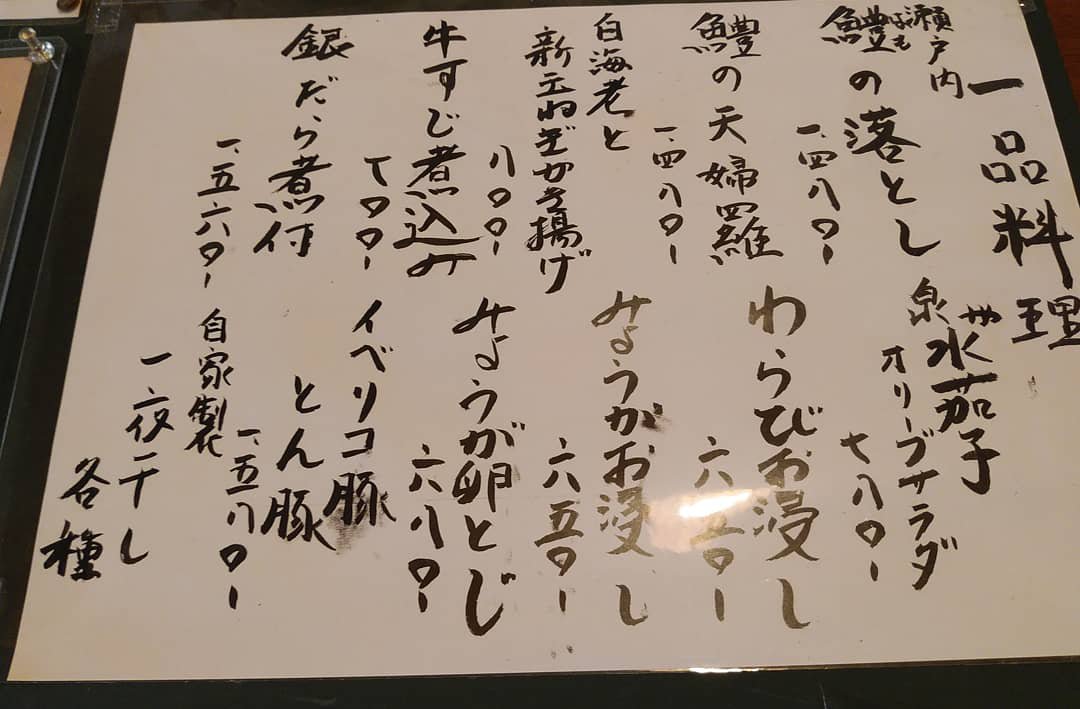 一品料理
瀬戸内
鱧の落とし
はも
一、四八〇ー
鱧の天婦羅
一、四八〇ー
白海老と
新玉ねぎかき揚げ
八〇〇ー
牛すじ煮込み
七〇〇ー
銀だら煮付
一、五六〇ー
泉水茄子
オリーブサラダ
七八〇ー
わらびお浸し
六五〇ー
みょうがお浸し
六五〇ー
みょうが卵とじ
六八〇ー
イベリコ豚
とん豚
一、五八〇ー
自家製
一夜干し
各種